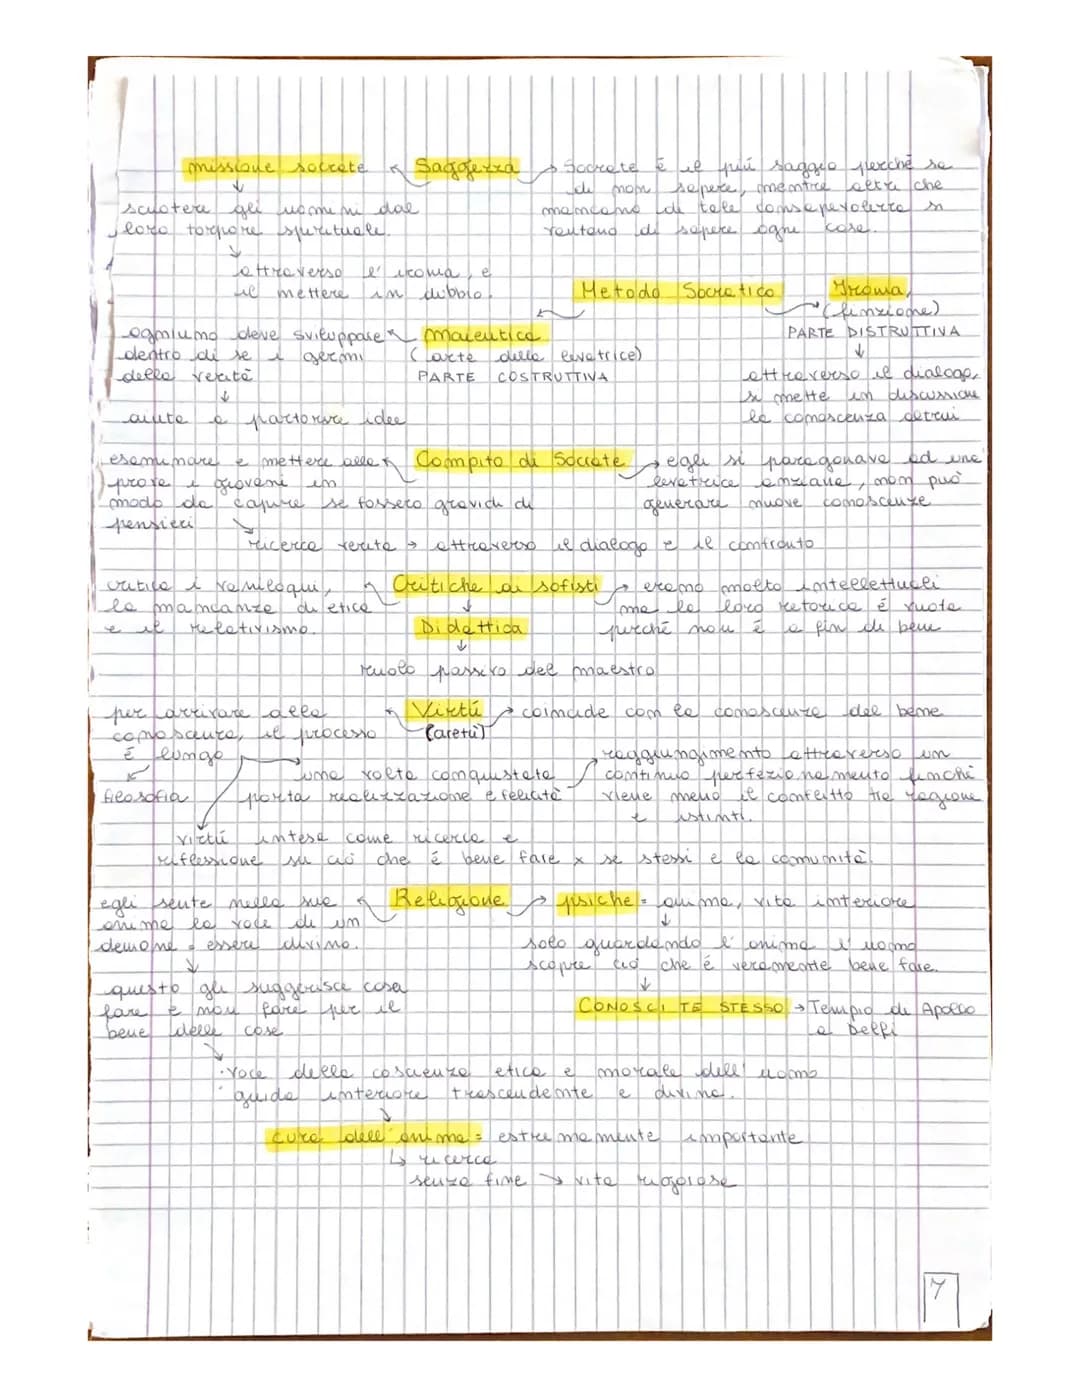 missione socrate ← Saggezza → Socrate è il più saggio perché sa
di non sapere, mentre altri che
mancano di tale consapevolezza si
vantano di sapere ogni cosa.
↓
scuotere gli uomini dal
loro torpore spirituale.
↓
attraverso l'ironia, e
il mettere in dubbio.
Metodo Socratico → Ironia,
(finzione)
PARTE DISTRUTTIVA
↓
attraverso il dialogo,
si mette in discussione
la conoscenza altrui
ogniuno deve sviluppare ← maieutica
dentro di se i germi (arte della levatrice)
della verità PARTE COSTRUTTIVA
↓
aiuta a partorire idee
esaminare e mettere alla ← Compito di Socrate → egli si paragonava ad una
prova i giovani in levatrice anziana, non può
modo da capire se fossero gravidi di generare nuove conoscenze
pensieri
ricerca verità → attraverso il dialogo e il confronto
critica i vaniloqui, ← Critiche ai sofisti → erano molto intellettuali
la mancanza di etica ma la loro retorica é vuota
e il relativismo. Didattica perché non é a fin di bene
↓
ruolo passivo del maestro
per arrivare alla ← Virtú → coincide con la conoscenza del bene
conoscenza, il processo (aretù)
é lungo
filosofia
una volta conquistata
porta realizzazione e felicità
raggiungimento attraverso un
continuo perfezionamento finché
viene meno il conflitto tra ragione
e istinti.
virtú intesa come ricerca e
riflessione su ció che é bene fare x se stessi e la comunità.
egli sente nella sua ← Religione → psiche = anima, vita interiore
anima la voce di un
demone = essere divino.
↓
solo guardando l'anima l'uomo
scopre ció che é veramente bene fare.
↓
questo gli suggerisce cosa
fare e non fare per il
bene delle cose
CONOSCI TE STESSO → Tempio di Apollo
a Delfi
· voce della coscienza etica e morale dell'uomo
· guida interiore trascendente e divina.
↓
cura dell'anima = estremamente importante
↳ ricerca
senza fine → vita rigorosa
7